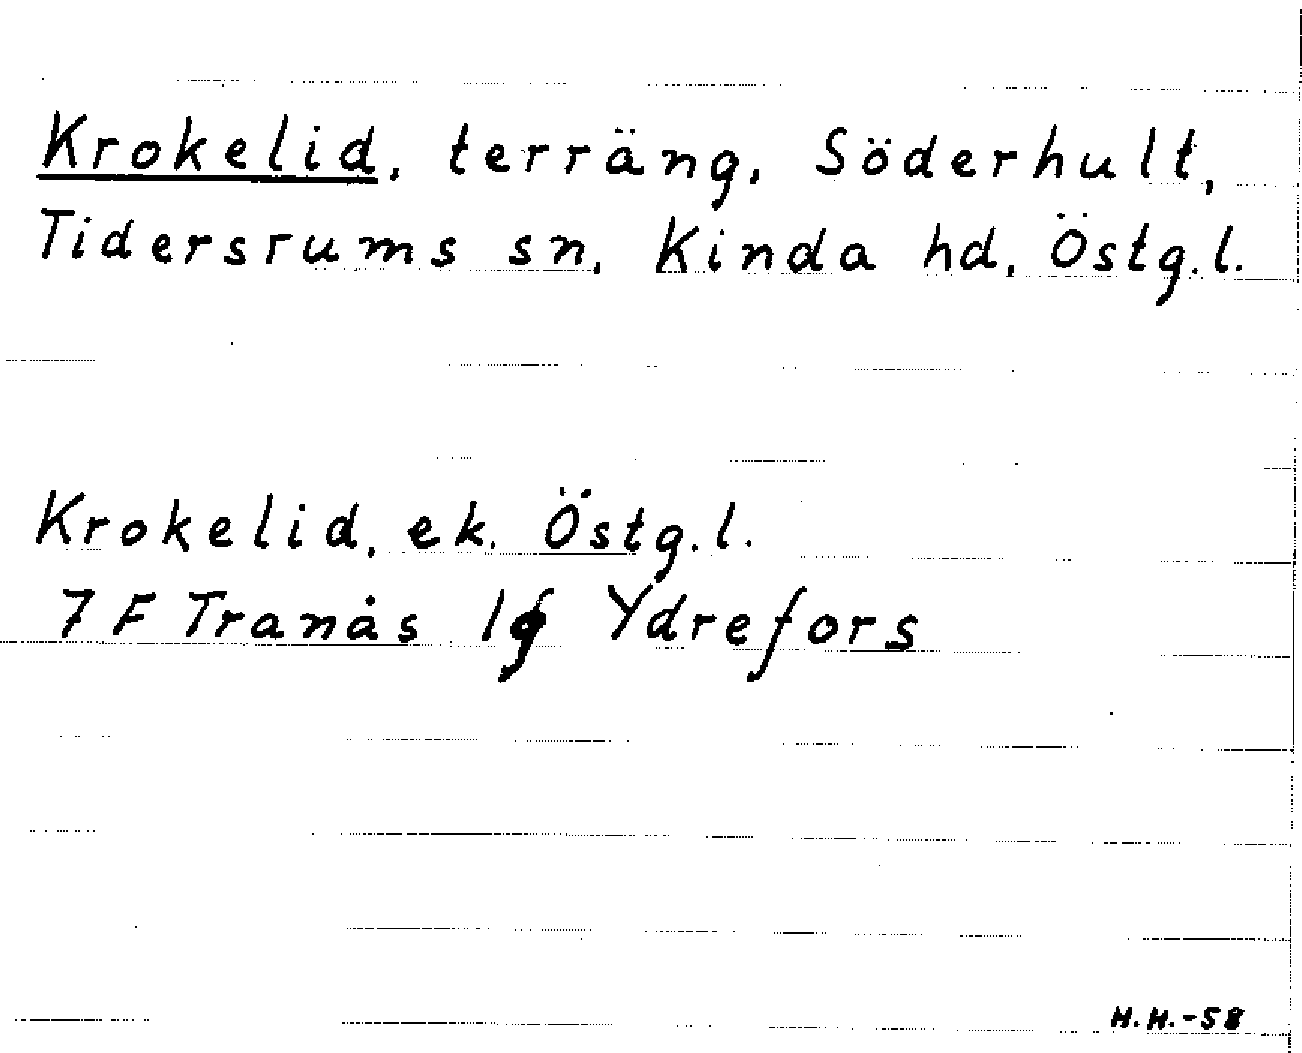 Krokelid, terräng, Söderhult,
Tidersrums sn, Kinda hd, Östg.l.
Krokelid, ek. Östg.l.
7 F Tranås Ydrefors
H.H.-58